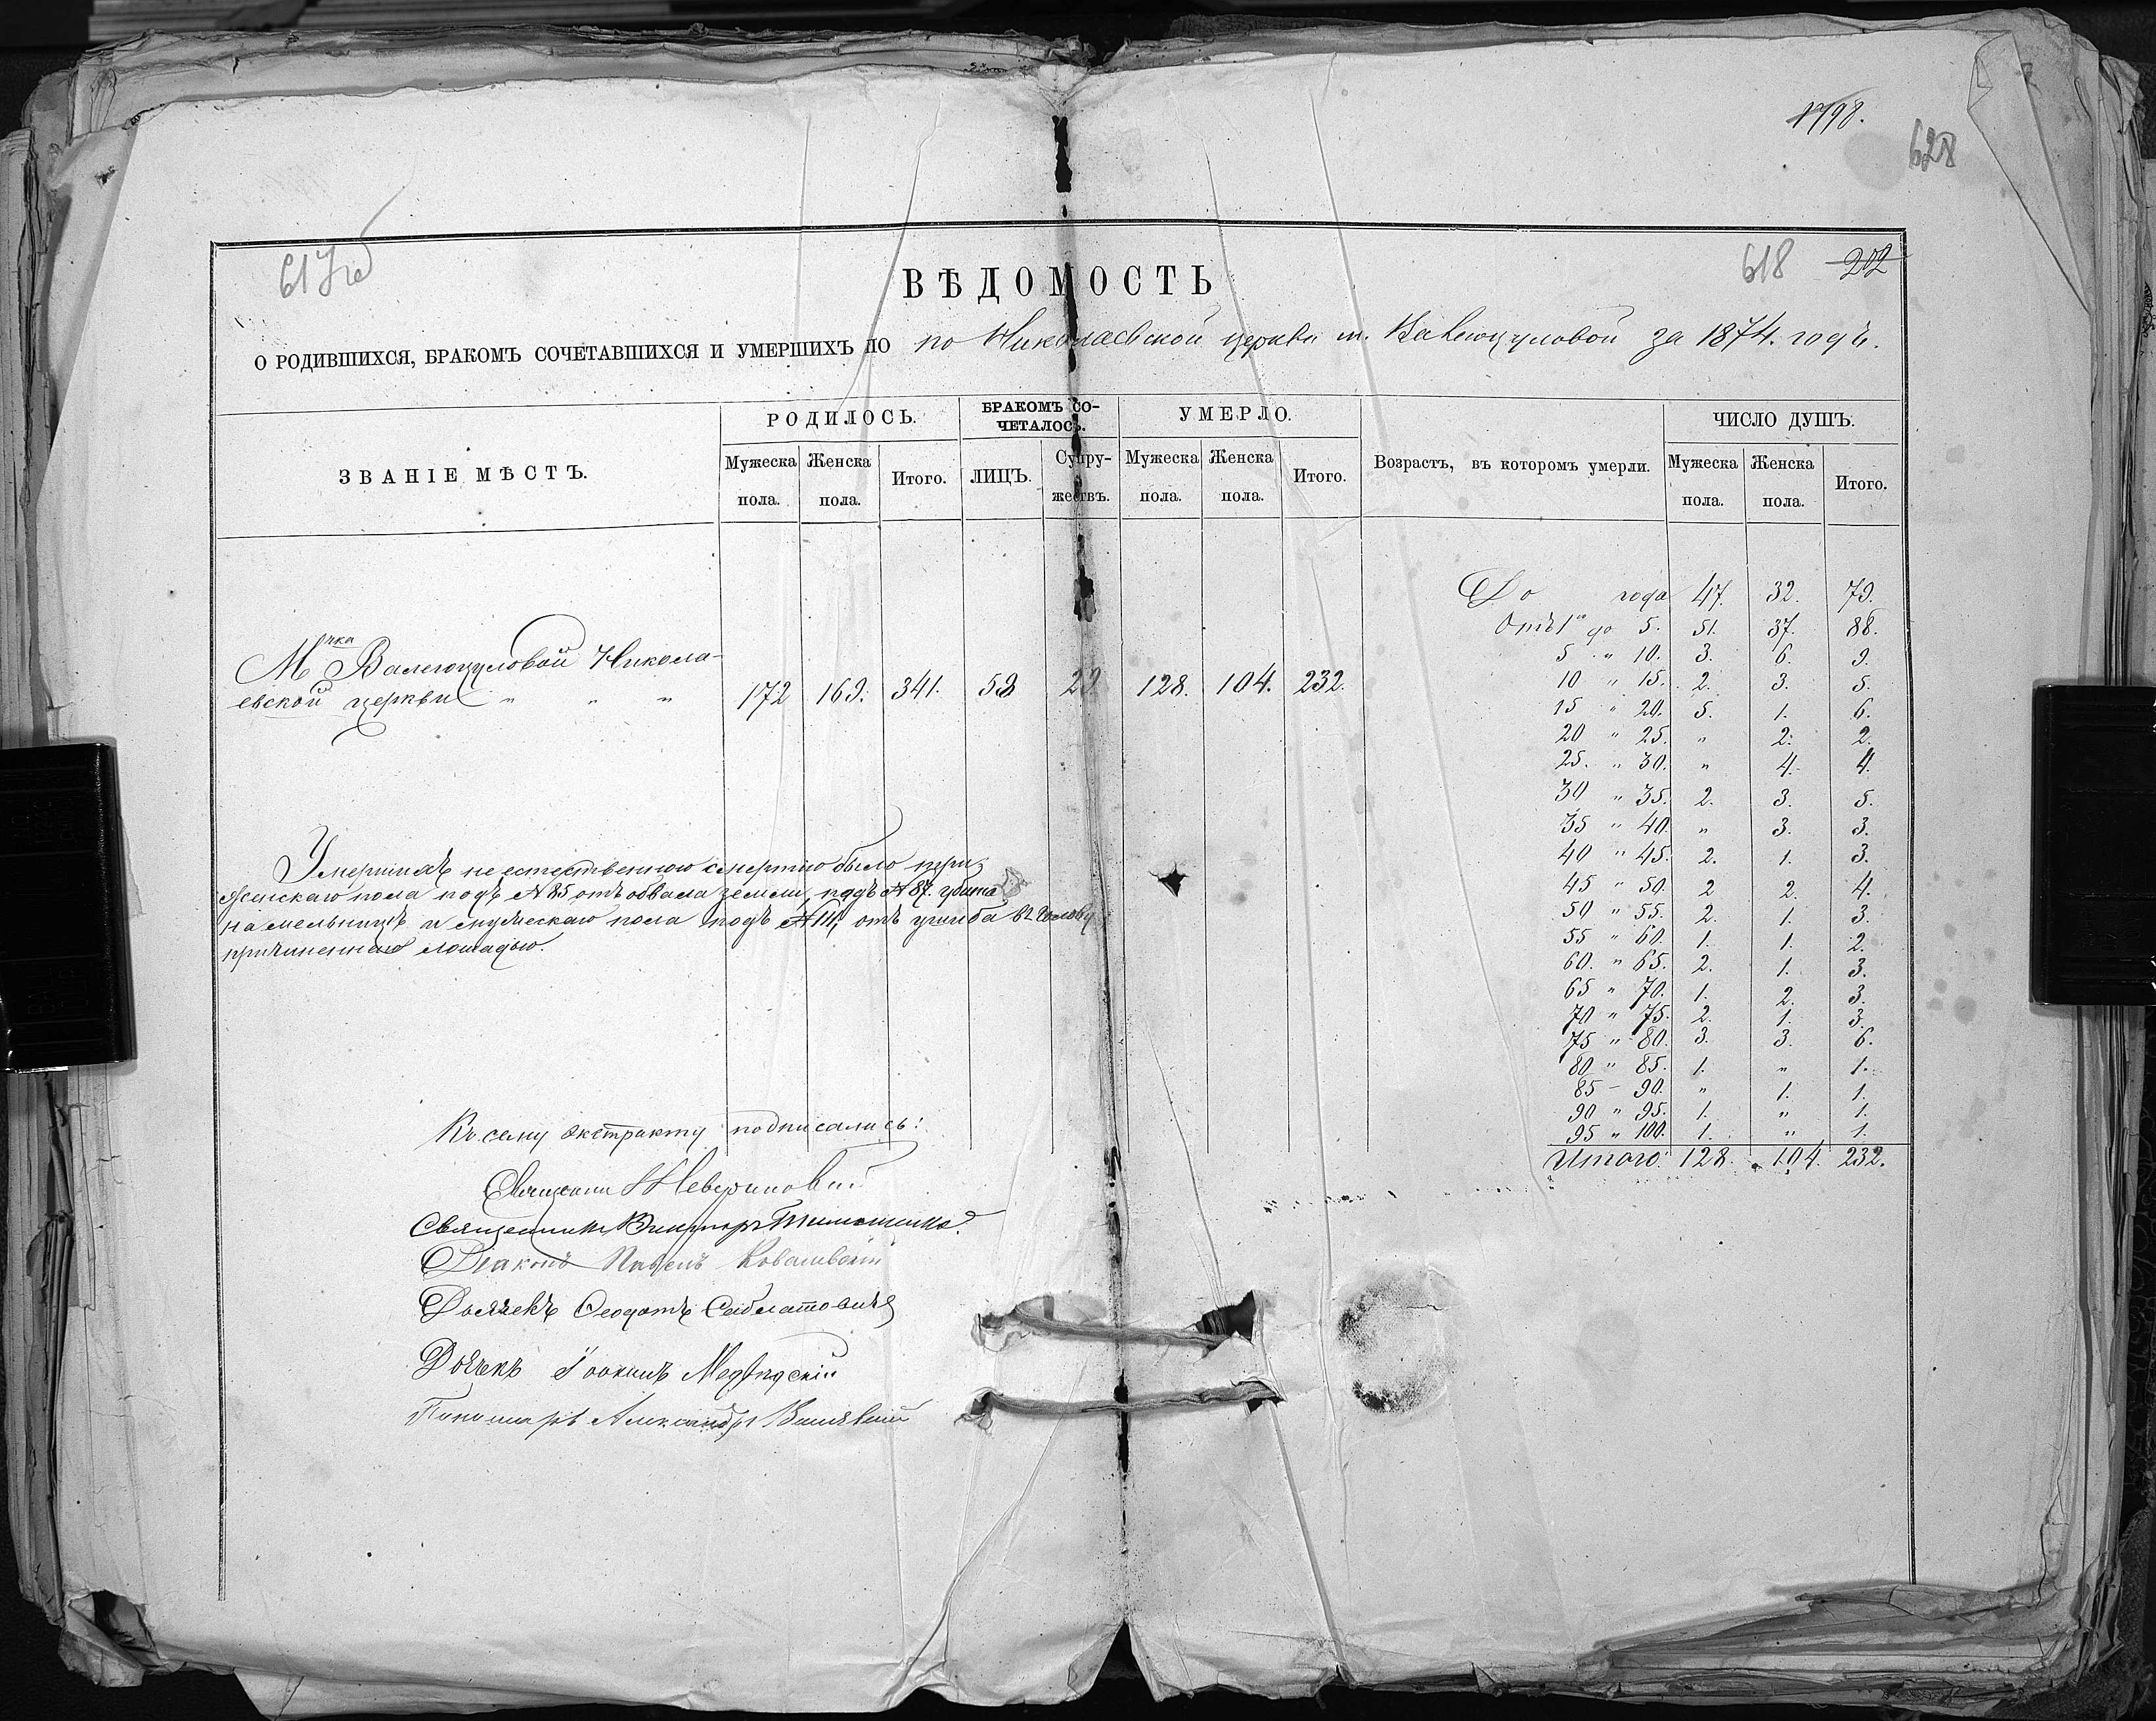 1798.
628
617об
618 202
ВѢДОМОСТЬ
О РОДИВШИХСЯ, БРАКОМЪ СОЧЕТАВШИХСЯ И УМЕРШИХЪ ПО по Николаевской церкви м. Валегоцуловой за 1874. годъ.
ЗВАНІЕ МѢСТЪ. РОДИЛОСЬ. БРАКОМЪ СОЧЕТАЛОСЬ. УМЕРЛО. Возрастъ, въ которомъ умерли. ЧИСЛО ДУШЪ.
Мужеска пола. Женска пола. Итого. ЛИЦЪ. Супружествъ. Мужеска пола. Женска пола. Итого. Мужеска пола. Женска пола. Итого.
М чка Валегоцуловой Никола-
евской церкви " " " 172 169. 341. 58 29. 128. 104. 232.
До года 47. 32. 79.
Отъ 1го до 5. 51. 37. 88.
5 " 10. 3. 6. 9.
10 " 15. 2. 3. 5.
15 " 20. 5. 1. 6.
20 " 25. " 2. 2.
25. " 30. " 4. 4.
30 " 35. 2. 3. 5.
35 " 40. " 3. 3.
40 " 45. 2. 1. 3.
45 " 50. 2 2. 4.
50 " 55. 2. 1. 3.
55 " 60. 1. 1. 2.
60. " 65. 2. 1. 3.
65 " 70. 1. 2. 3.
70 " 75. 2. 1. 3.
75 " 80. 3. 3. 6.
80 " 85. 1. " 1.
85 - 90. " 1. 1.
90 " 95. 1. " 1.
95 " 100. 1. " 1.
Итого. 128. 104. 232.
Умершихъ неестественною смертію было три,
женскаго пола подъ № 85 отъ обвала земли, подъ № 87. убита
на мельницѣ и мужескаго пола подъ № 111, отъ ушиба въ голову
причиненнаго лошадью.
Къ сему экстракту подписались:
Священникъ
Священникъ Викторъ Тимошенко.
Діаконъ Павелъ
Дьячекъ Ѳеодотъ
Дьячекъ Іоакимъ Медвѣдскій
Пономарь Александръ